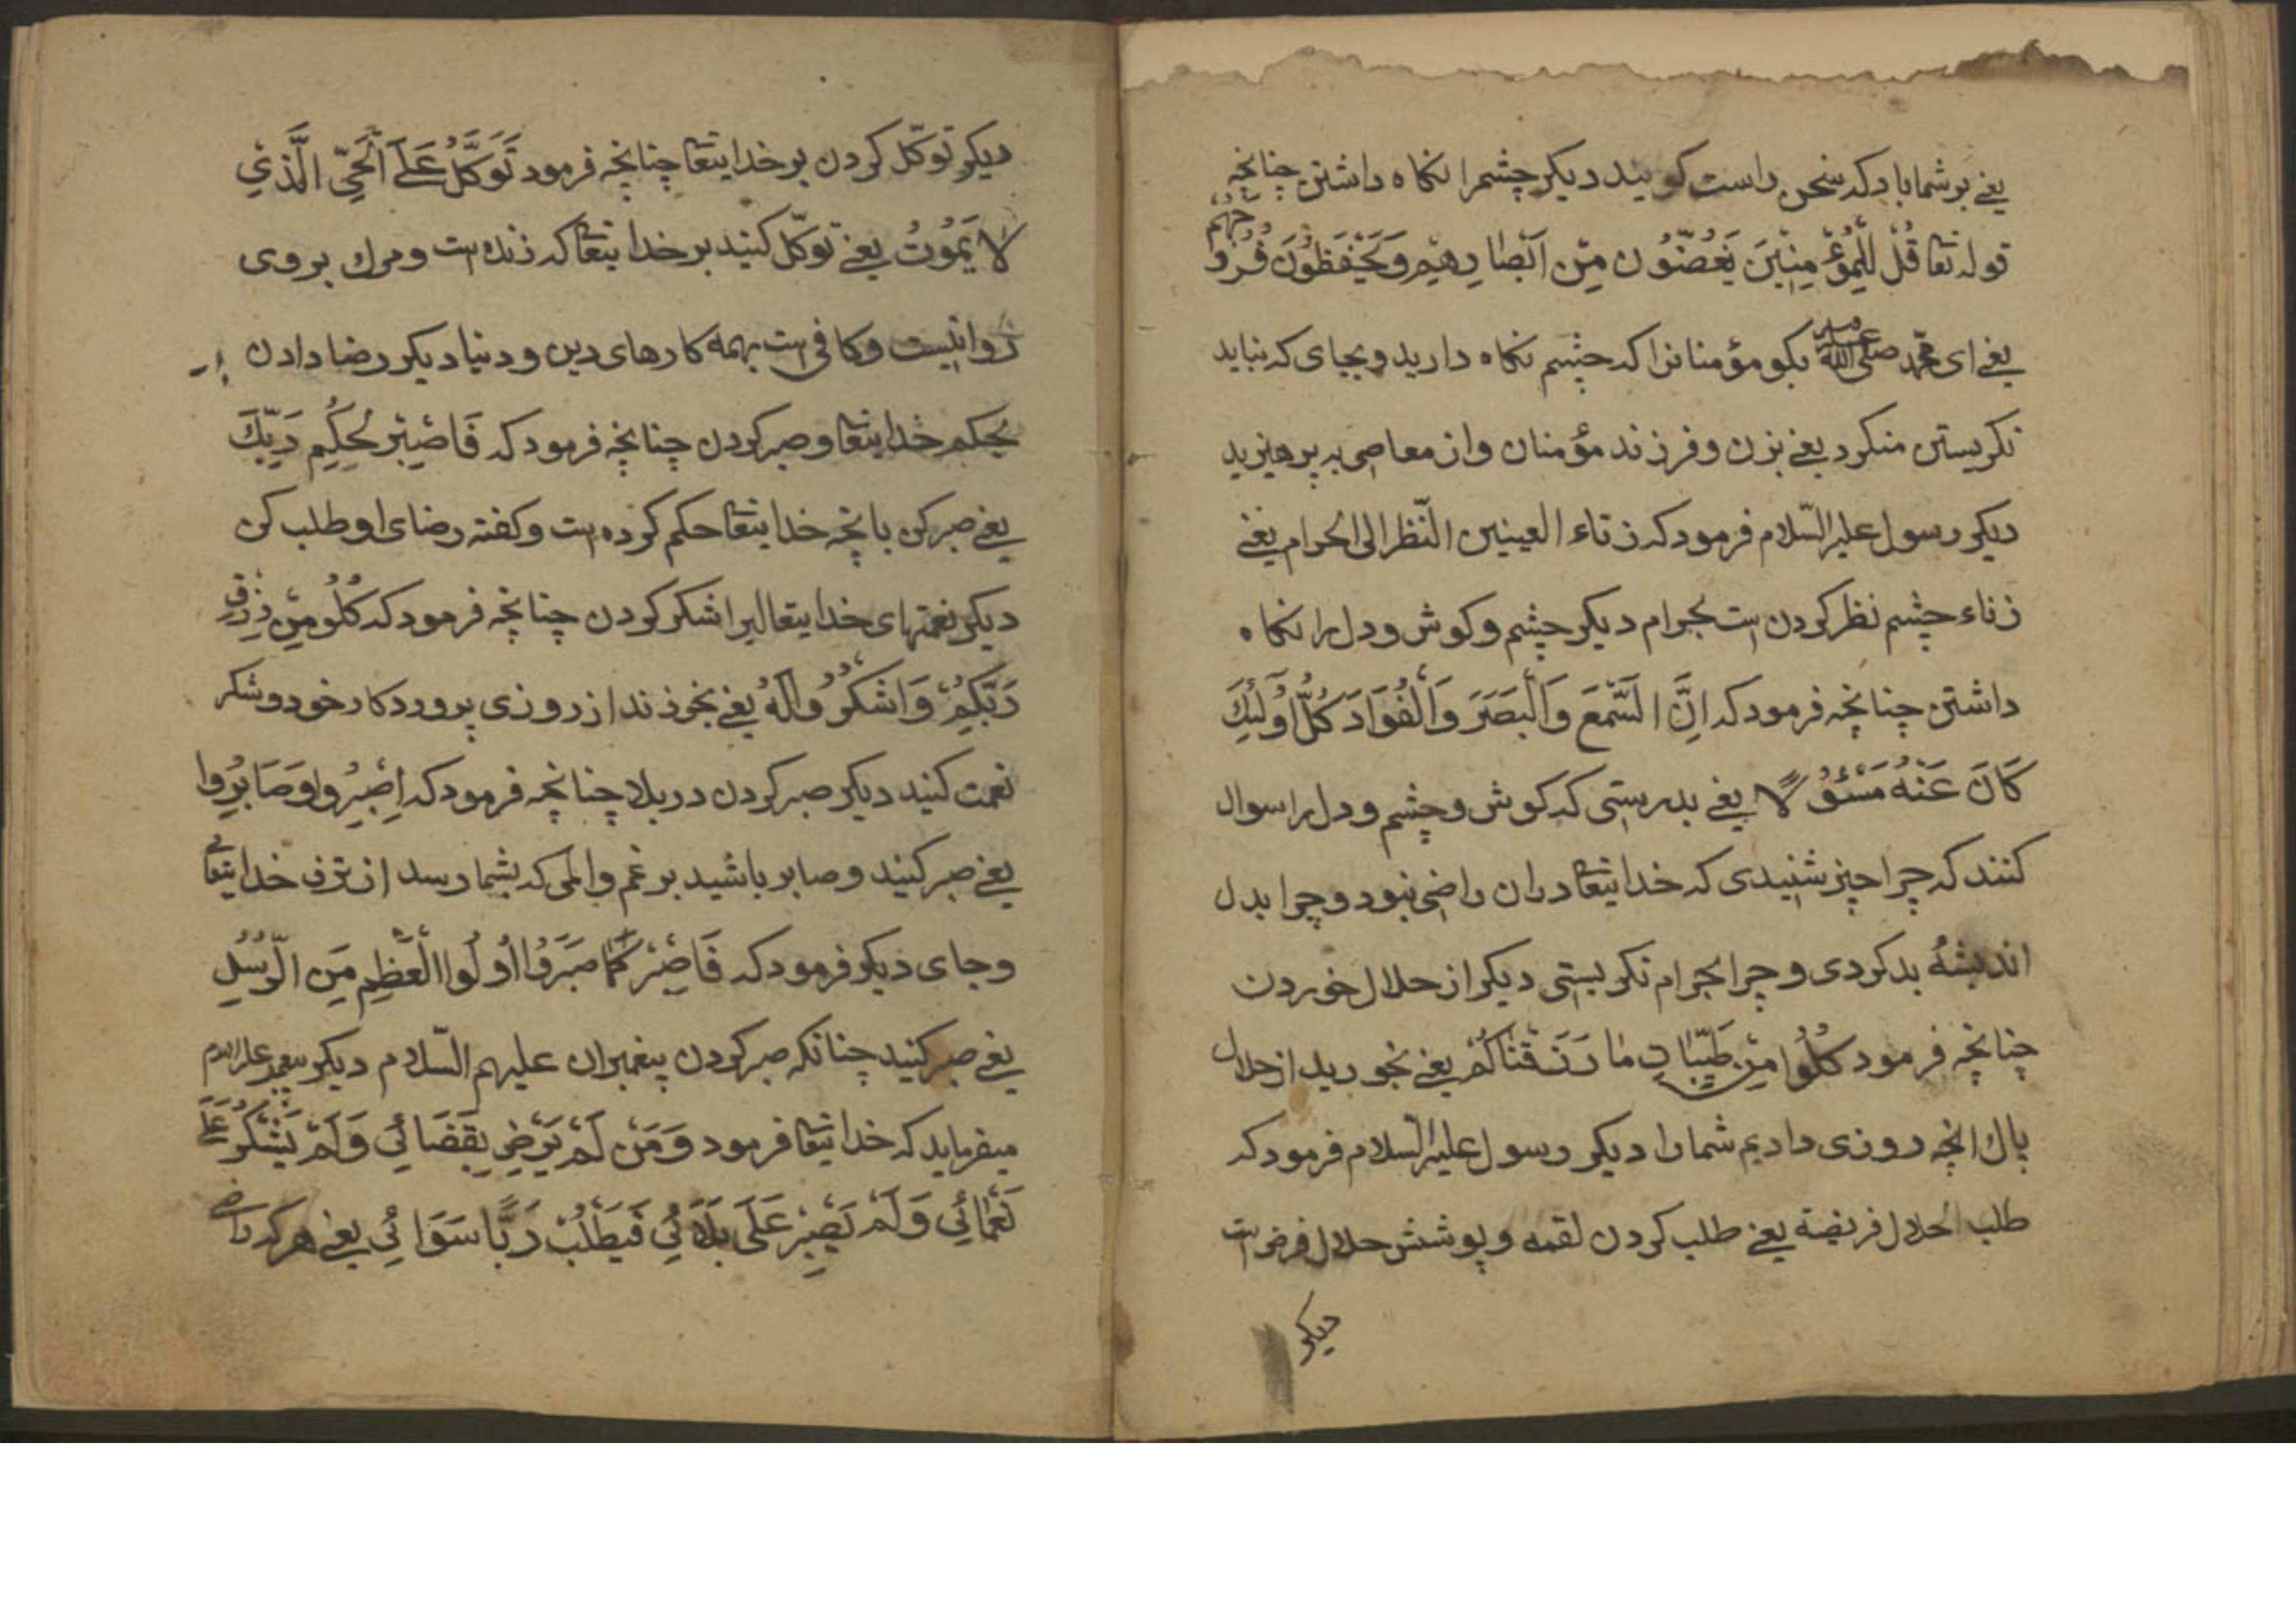 یعنی بر شما باد که سخن راست کویید دیکر چشمرا نکاه داشتن چنانچه
قوله تعا قُلْ لِلْمُؤْمِنِیْنَ یَغُضُّوْن مِنْ اَبْصَارِهِیْم وَیَحْفَظُوْنَ فُرُوْجَهُم
یعنی ای محمد صلی الله علیه بکو مؤمنانرا که چشم نکاه دارید و بجای که نباید
نکریستن منکرد یعنی بزن و فرزند مؤمنان و از معاصی به پرهیزید
دیکر رسول علیه السّلام فرمود که زناء العینین النّظر الی الحرام یعنی
زناء چشم نظر کردن است بحرام دیکر چشم و کوش و دل را نکاه
داشتن چنانچه فرمود که اِنَّ السَّمْعَ وَالْبَصَرَ وَالْفُوَادَ کُلُّ اُولٰئِكَ
کَانَ عَنْهُ مَسْئُوْلًا یعنی بدرستی که کوش و چشم و دل را سوال
کنند که چرا چیز شنیدی که خدایتعا دران راضی نبود و چرا بدل
اندیشهٔ بد کردی و چرا بحرام نکریستی دیکر از حلال خوردن
چنانچه فرمود کُلُوا مِنْ طَیِّبَاتِ مَا رَزَقْنَاکُمْ یعنی بخورید از حلال
پاك انچه روزی دادیم شما را دیکر رسول علیه السّلام فرمود که
طلب الحلال فریضة یعنی طلب کردن لقمه و پوشش حلال فرض است
دیکر
دیکر توکّل کردن بر خدایتعا چنانچه فرمود تَوَکَّلُ عَلَی الْحَیِّ الَّذِیْ
لَا یَمُوْتُ یعنی توکّل کنید بر خدایتعا که زنده است و مرك بر وی
روا نیست و کافی است بهمه کارهای دین و دنیا دیکر رضا دادن
بحکم خدایتعا و صبر کردن چنانچه فرمود که فَاصْبِرْ لِحُکْمِ رَبِّكَ
یعنی صبر کن بانچه خدایتعا حکم کرده است و کفته رضای او طلب کن
دیکر نعمتهای خدایتعالیرا شکر کردن چنانچه فرمود که کُلُوْ مِنْ رِزْقِ
رَبِّکُمْ وَاشْکُرُوْالَهُ یعنی بخورند از روزی پروردکار خود و شکر
نعمت کنید دیکر صبر کردن در بلا چنانچه فرمود که اِصْبِرُوا وَصَابِرُوا
یعنی صبر کنید و صابر باشید بر غم و المی که بشما رسد از نزد خدایتعالی
و جای دیکر فرمود که فَاصْبِرْ کَمَا صَبَرَ وُااُولُوا الْعَظْمِ مِنَ الرُّسُلِ
یعنی صبر کنید چنانکه صبر کردن پیغمبران علیهم السّلام دیکر پیغمبر علیه السلام
میفرماید که خدایتعا فرمود وَمَنْ لَمْ یَرْضِ بِقَضَائِی وَلَمْ یَشْکُرْ عَلَی
نَعْمَائِی وَلَمْ یَصْبِرْ عَلَی بَلَائِیْ فَیَطْلُبْ رَبًّا سَوَائِی یعنی هر که راضی